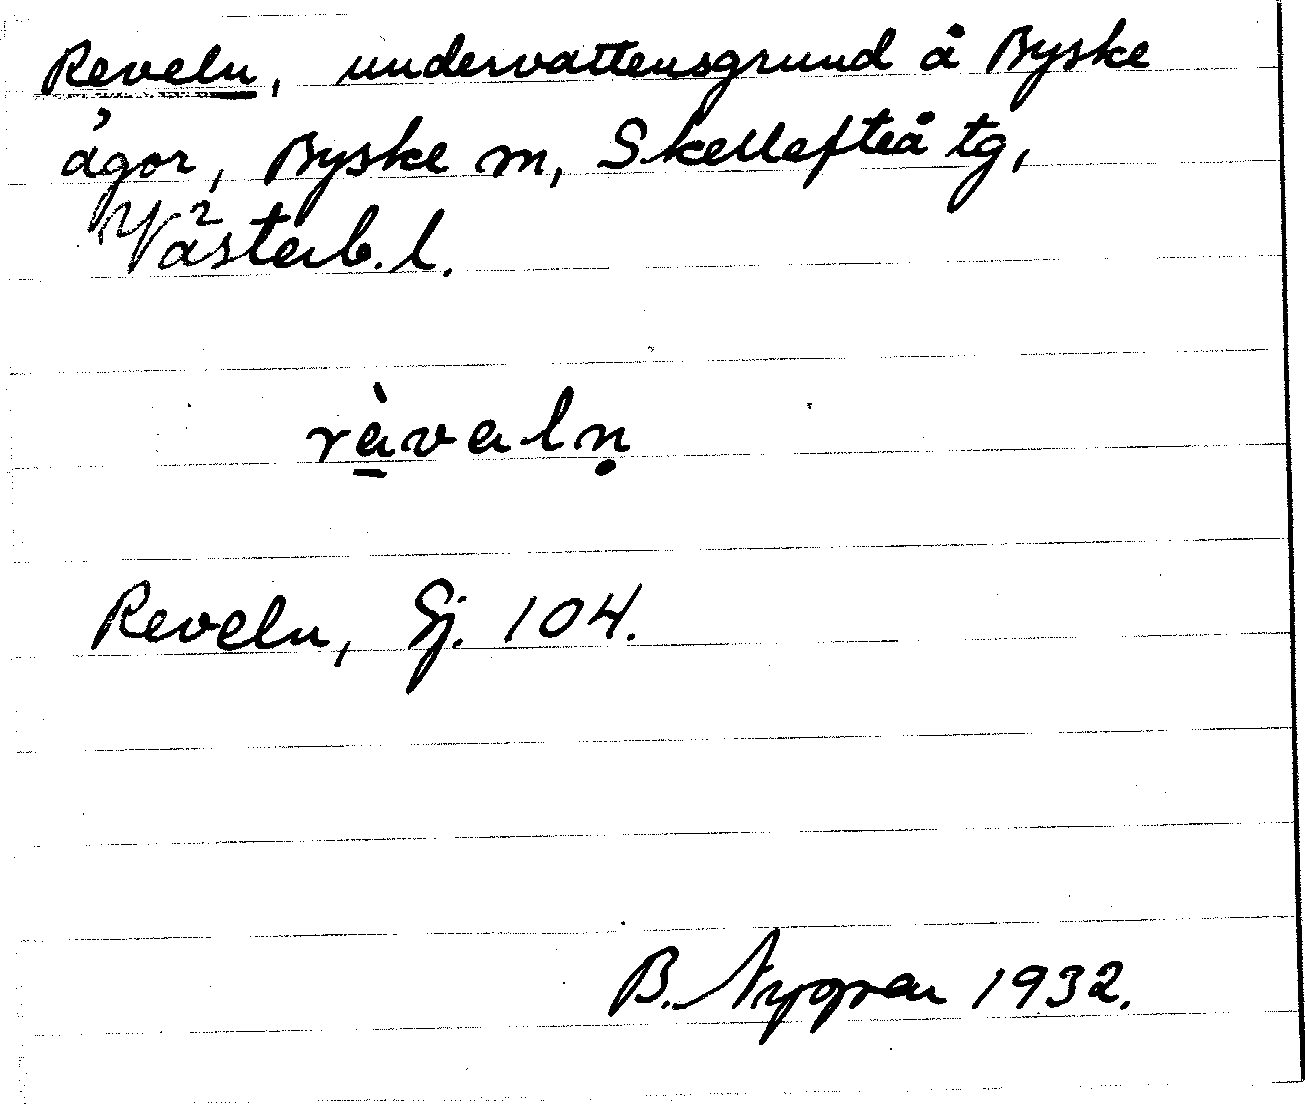 Reveln, undervattensgrund å Byske
ägor, Byske sn, Skellefteå tg,
Västerb. l.
rà̱valṇ
Reveln, Sj. 104.
B. Nygren 1932.